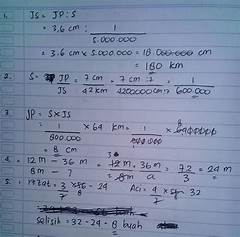 1. JS = JP : S
= 3.6 cm : 1/5.000.000
= 3.6 cm x 5.000.000 = 18.000.000 cm
= 180 km
2. S = JP/JS = 7 cm/42 km = 7 cm : 7/4200000 cm : 7 = 1/600.000
3. JP = S x JS
= 1/800.000 x 64 km = 1/800.000 x 6400000
= 8 cm
4. = 12 m - 36 m = 12 m . 36 m = 72/3 = 24 m
8 m - ?
5. = rezat = 3/7 x 56 = 24 Aci = 4/7 x 56 32
selisih = 32 - 24 = 8 buah